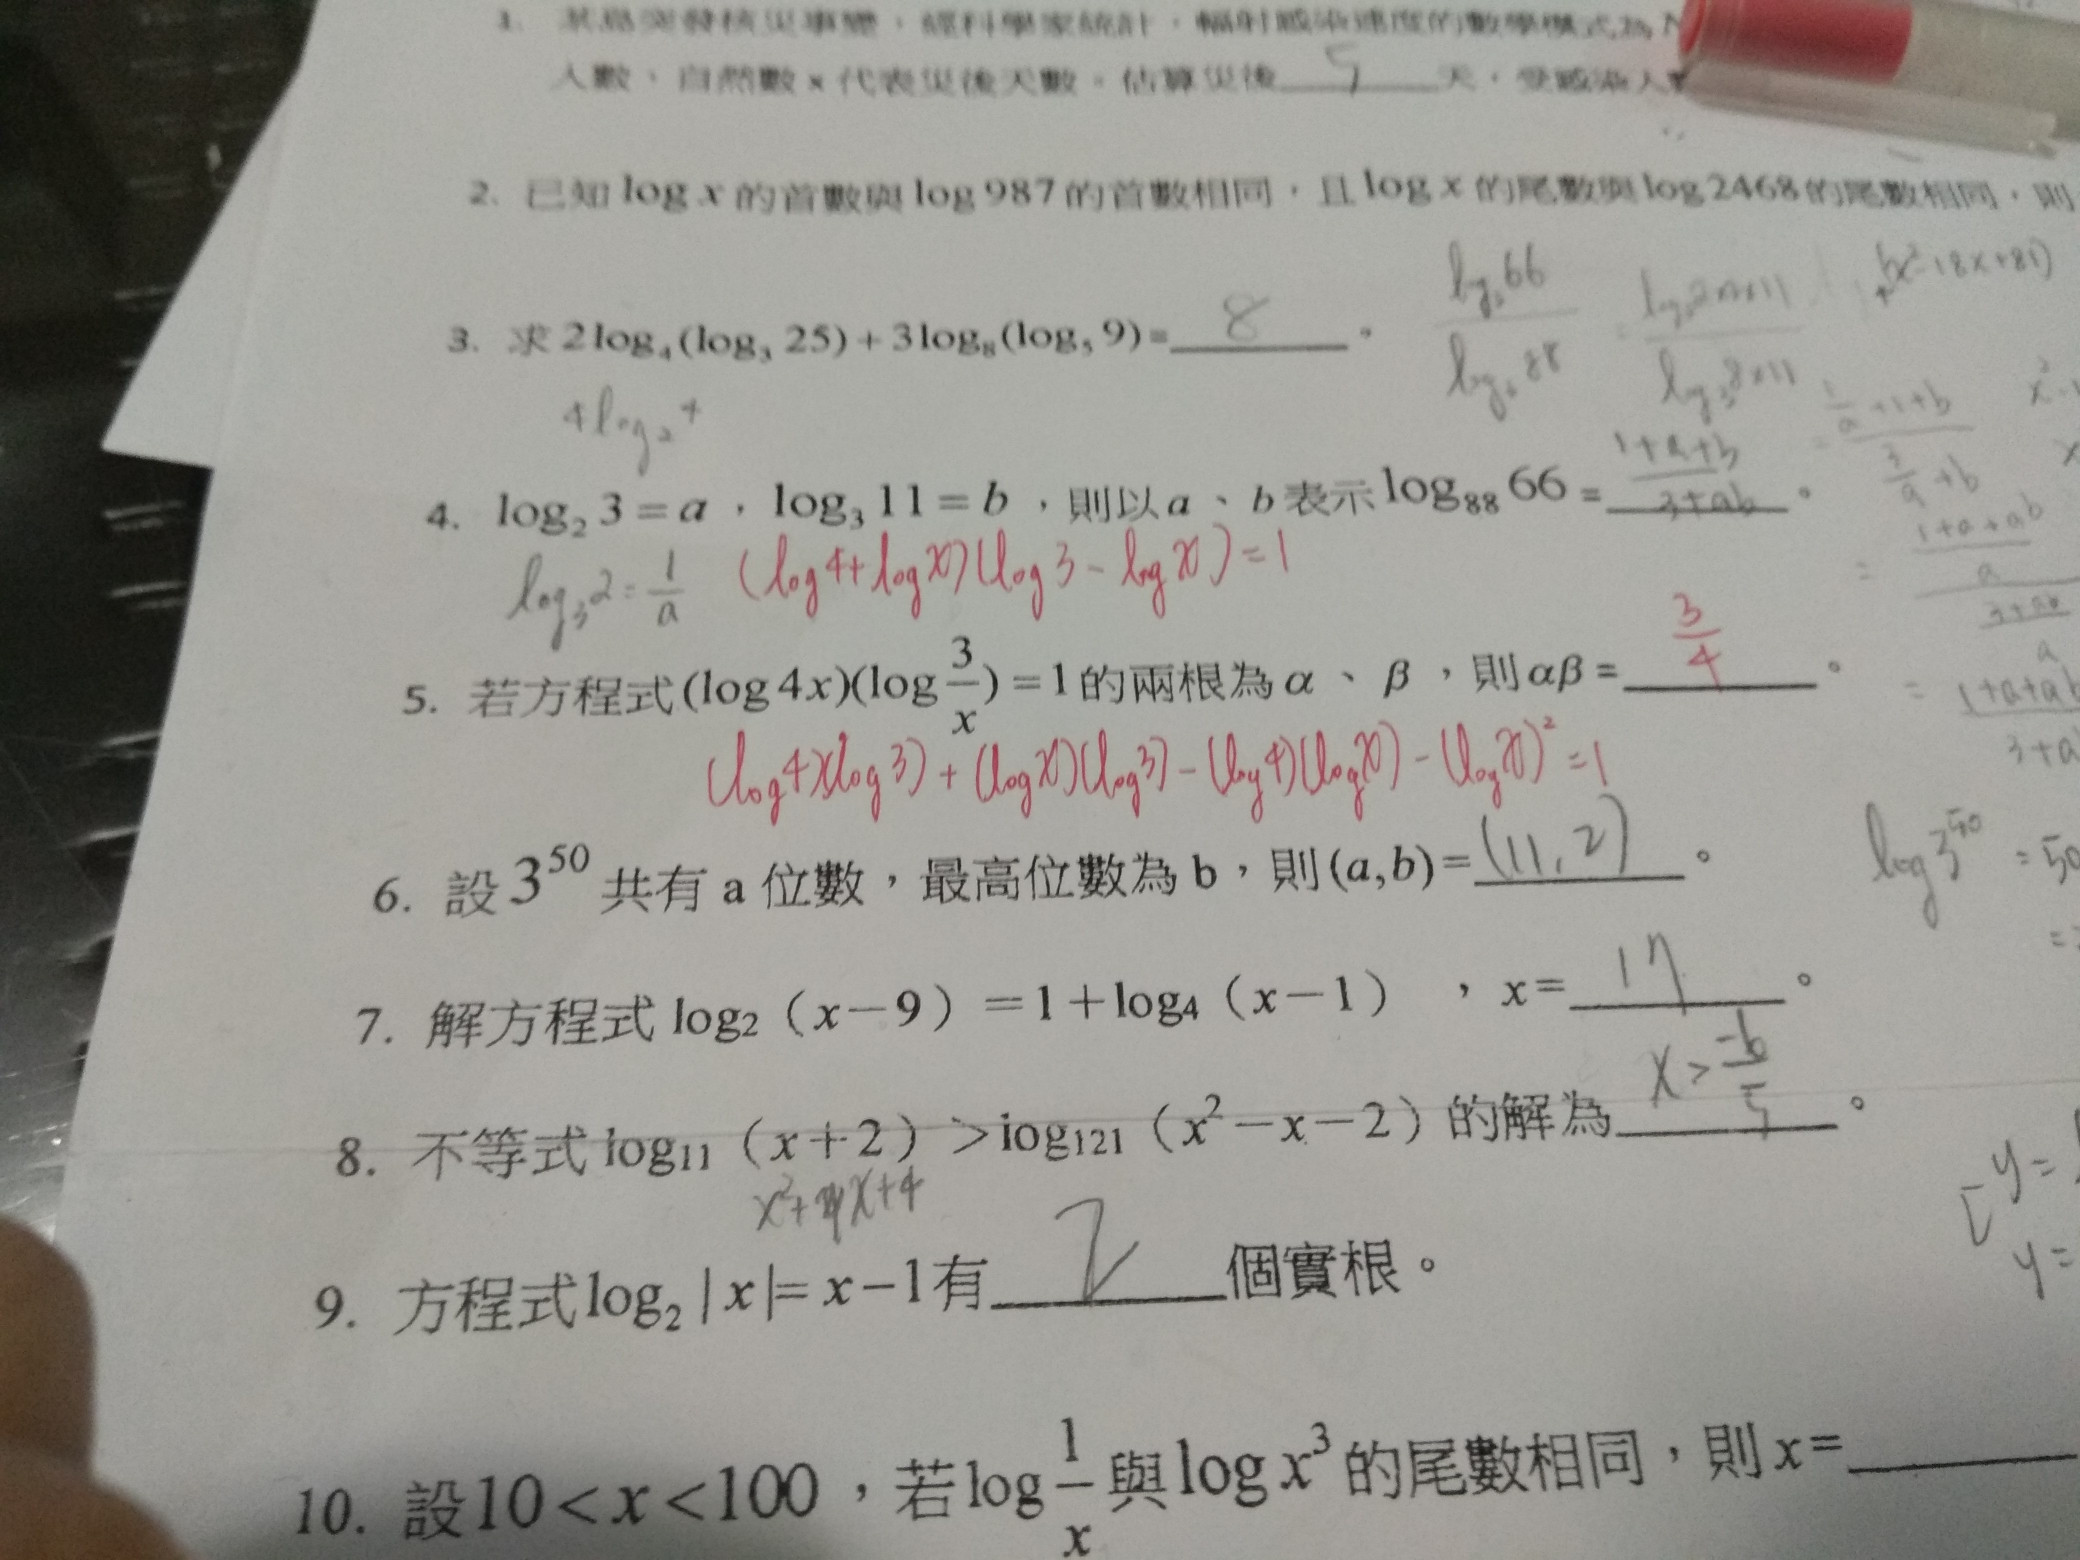 人數、自然數x代表災後天數。估算災後 5 天,受感染人
2. 已知log x的首數與log 987的首數相同,且log x的尾數與log 2468的尾數相同,則
3. 求2log₄(log₃ 25)+3log₈(log₅ 9)= 8 。
4log₂4
log₃66 / log₃88
4. log₂ 3 = a,log₃ 11 = b,則以a、b表示log₈₈ 66 = 1+a+b / 3+ab 。
log₃2 = 1/a (log4+logx)(log3-logx)=1
5. 若方程式(log 4x)(log 3/x) = 1的兩根為α、β,則αβ = 3/4 。
(log4)(log3)+(logx)(log3)-(log4)(logx)-(logx)²=1
6. 設3⁵⁰共有a位數,最高位數為b,則(a,b)= (11,2) 。
log3⁵⁰ = 50
7. 解方程式 log₂(x-9)=1+log₄(x-1) ,x= 17 。
8. 不等式 log₁₁(x+2)>log₁₂₁(x²-x-2)的解為 x > -6/5 。
x²+4x+4
y=
y=
9. 方程式log₂|x|= x-1有 2 個實根。
10. 設10<x<100,若log 1/x 與log x³的尾數相同,則x=